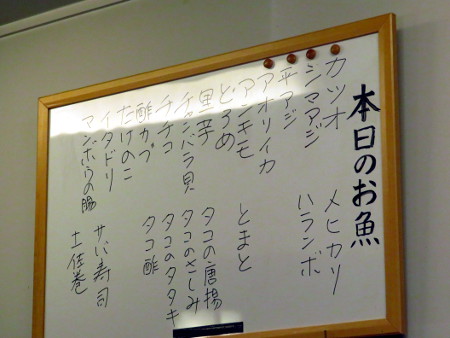 本日のお魚
カツオ
シマアジ
平アジ
アオリイカ
アンキモ
どろめ
里芋
チャンバラ貝
チチコ
酢カブ
たけのこ
イタドリ
マンボウの腸
メヒカリ
ハランボ
とまと
タコの唐揚
タコのさしみ
タコのタタキ
タコ酢
サバ寿司
土佐巻